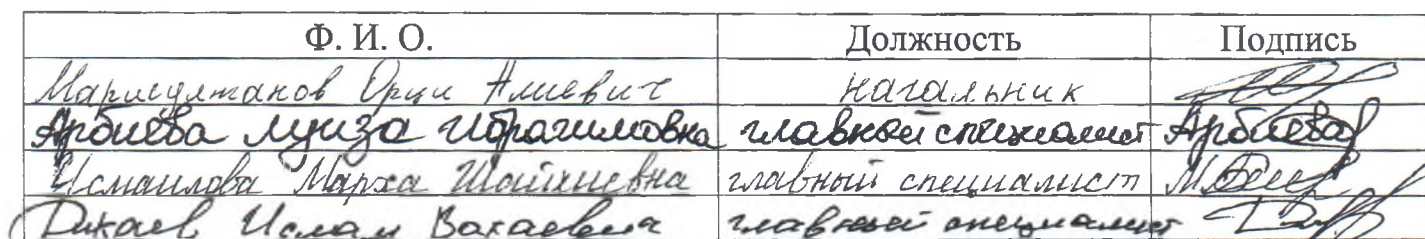 Ф. И. О. Должность Подпись
Марисултанов Орци Алиевич начальник
Арбиева Луиза Ибрагимовна главный специалист Арбиева
Исмаилова Марха Шайхиевна главный специалист
Джаев Ислам Вахаевич главный специалист